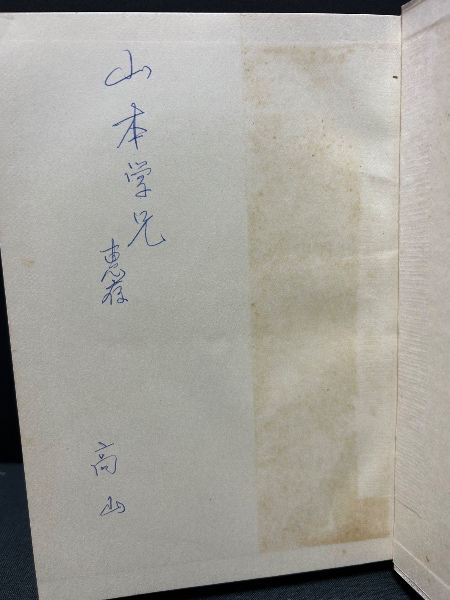 山本学兄
惠存
高山